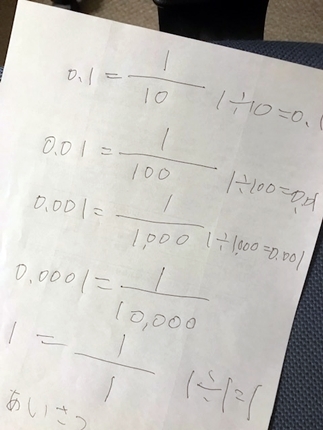 0.1 = 1/10 1÷10=0.1
0.01 = 1/100 1÷100=0.01
0.001 = 1/1,000 1÷1,000=0.001
0.0001 = 1/10,000
1 = 1/1 1÷1=1
あいさつ